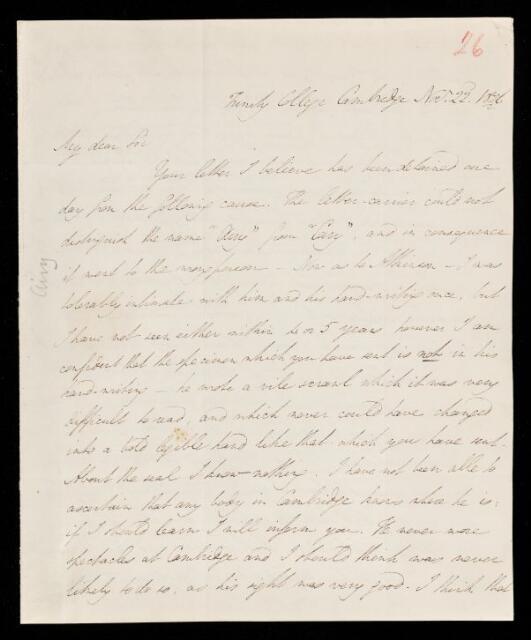 26
Trinity College Cambridge Nov. 22. 1826
My dear Sir
Your letter I believe has been detained one
day from the following cause. The letter-carrier could not
distinguish the name "Airy" from "Cary", and in consequence
it went to the wrong person – Now as to Atkinson – I was
tolerably intimate with him and his hand-writing once, but
I have not seen either within 4 or 5 years however I am
confident that the specimen which you have sent is not in his
hand-writing – he wrote a vile scrawl which it was very
difficult to read, and which never could have changed
into a bold legible hand like that which you have sent.
About the seal I know nothing. I have not been able to
ascertain that any body in Cambridge knows where he is:
if I should learn I will inform you. He never wore
spectacles at Cambridge and I should think was never
likely to do so, as his sight was very good. I think that
Airy